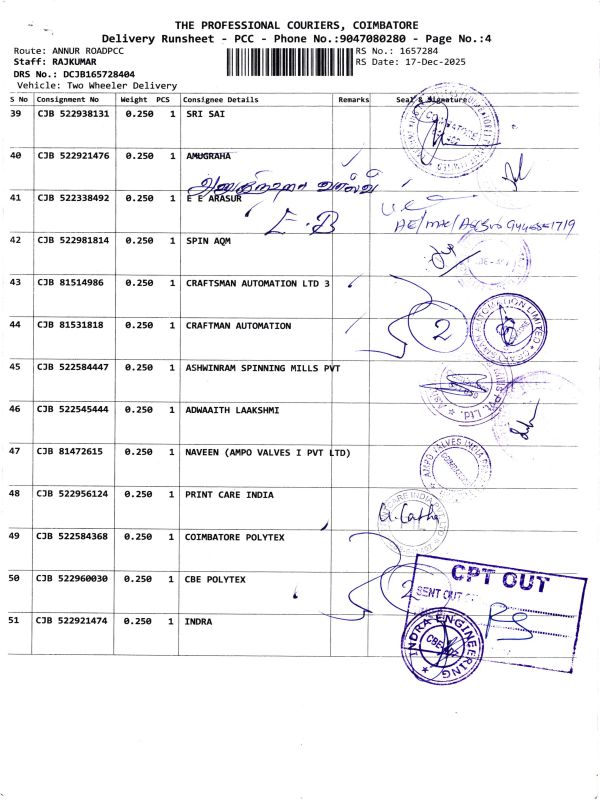 THE PROFESSIONAL COURIERS, COIMBATORE
Delivery Runsheet - PCC - Phone No.:9047080280 - Page No.:4
Route: ANNUR ROADPCC
RS No.: 1657284
Staff: RAJKUMAR
RS Date: 17-Dec-2025
DRS No.: DCJB165728404
Vehicle: Two Wheeler Delivery
S No Consignment No Weight PCS Consignee Details Remarks Seal & Signature
39 CJB 522938131 0.250 1 SRI SAI
40 CJB 522921476 0.250 1 AMUGRAHA
41 CJB 522338492 0.250 1 E E ARASUR
E.B
42 CJB 522981814 0.250 1 SPIN AQM
43 CJB 81514986 0.250 1 CRAFTSMAN AUTOMATION LTD 3
44 CJB 81531818 0.250 1 CRAFTMAN AUTOMATION
2
45 CJB 522584447 0.250 1 ASHWINRAM SPINNING MILLS PVT
46 CJB 522545444 0.250 1 ADWAAITH LAAKSHMI
47 CJB 81472615 0.250 1 NAVEEN (AMPO VALVES I PVT LTD)
AMPO VALVES INDIA
48 CJB 522956124 0.250 1 PRINT CARE INDIA
49 CJB 522584368 0.250 1 COIMBATORE POLYTEX
50 CJB 522960030 0.250 1 CBE POLYTEX
2
CPT OUT
SENT OUT
51 CJB 522921474 0.250 1 INDRA
INDRA ENGINEERING